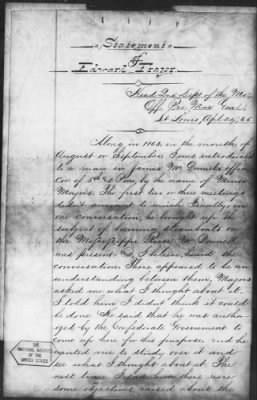 Statement
of
Edward Frazor.
Head 2nd Dept of the Mo
Off. Pro. Mar. Genl.
St Louis, Apl 24, 65
Along in 1863, in the month of
August or September I was introduced
to a man in James McDonell's office
Cor of 5th & Pine, by the name of
Majors. The first two or three meetings
didn't amount to much. Finally, in
one conversation, he brought up the
subject of burning steamboats on
the Mississippi River. McDonell
was present & I believe, heard the
conversation. There appeared to be an
understanding between them. Majors
asked me what I thought about it.
I told him I didn't think it could
be done. He said that he was autho-
rized by the Confederate Government to
come up here for this purpose, and he
wanted me to study over it and
see what I thought about it. The
next time I saw him there were
some objections raised about the
THE
NATIONAL ARCHIVES
OF THE
UNITED STATES